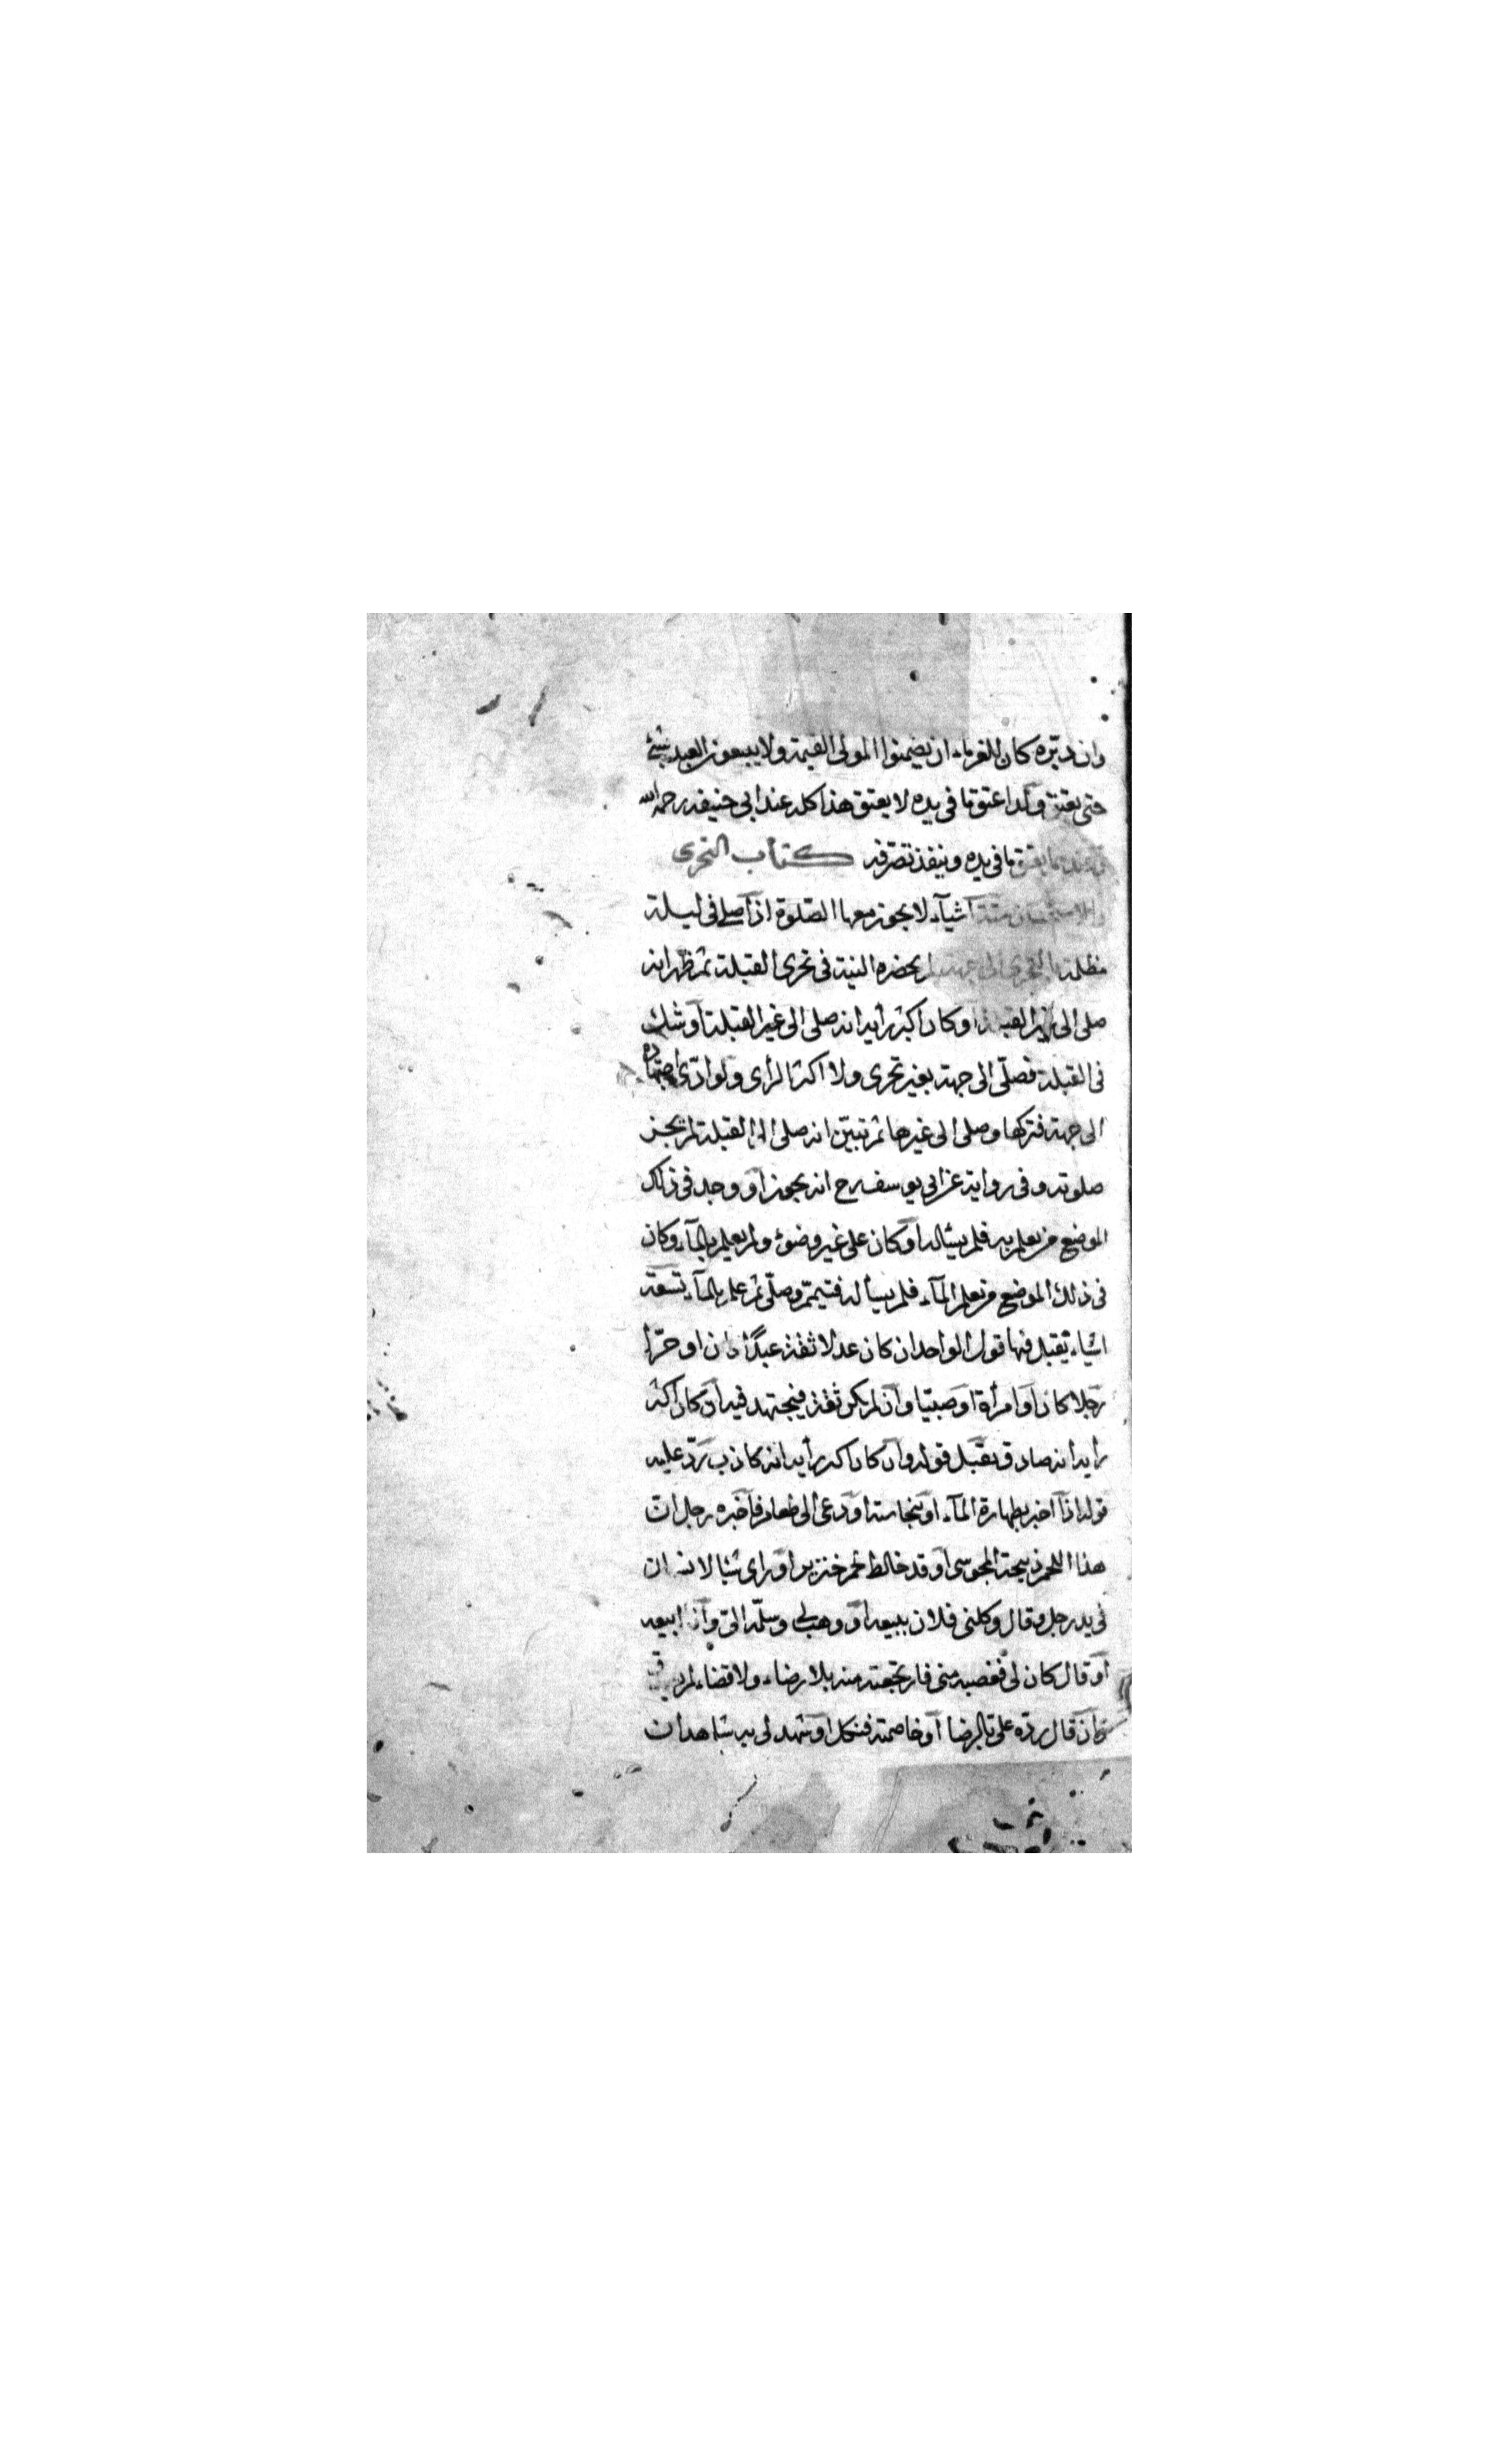 وان دبّره كان للغرماء ان يضمنوا المولى القيمة ولا يبيعون العبد بشئ
حتى يعتق ولو اعتق ما فى يده لا يعتق هذا كله عند ابى حنيفه رحمه الله
وعندهما يعتق ما فى يده وينفذ تصرفه كتاب التحرى
والاستحسان ستة اشيآء لا يجوز معها الصّلوة اذا صلى فى ليلة
مظلمة بالتحرى الى جهة لم يحضره النية فى تحرى القبلة ثم ظهر انه
صلى الى غير القبلة او كان اكبر رأيه انه صلى الى غير القبلة او شك
فى القبلة فصلّى الى جهة بغير تحرى ولا اكثر الرأى ولو ادّى اجتهاده
الى جهة فتركها وصلى الى غيرها ثم تبيّن انه صلى الى القبلة لم يجز
صلوته وفى رواية عن ابى يوسف رح انه يجوز او وجد فى ذلك
الموضع من يعلم به فلم يسئاله او كان على غير وضوء ولم يعلم بالمآء وكان
فى ذلك الموضع من يعلم المآء فلم يسأله فتيمّم وصلّى ثم علم بالمآء تسعة
اشياء يقبل فيها قول الواحد ان كان عدلا ثقة عبدًا كان او حرّا
رجلا كان او امرأة او صبيّا وان لم يكن ثقة فيجتهد فيه ان كان اكثر
رأيه انه صادق يقبل قوله وان كان اكبر رأيه انه كاذب ردّ عليه
قوله اذا اخبر بطهارة المآء او بنجاسته او دعى الى طعام فاخبره رجل انّ
هذا اللحم ذبيحة المجوسى او قد خالط لحم خنزير او راى شيئا لانسان
فى يد رجل وقال وكلنى فلان ببيعه او وهب لى وسلّمه الىّ وانا ابيعه
او قال كان لى فغصبه منى فارتجعته منه بلا رضاء ولا قضاء لم
فان قال ردّه علىّ بالرضا او خاصمته فنكل او شهد لى به شاهدان